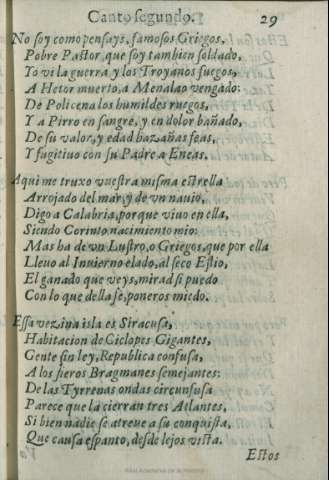 Canto segundo.
29
No soy como pensays, famosos Griegos,
Pobre Pastor, que soy tambien soldado,
Yo vi la guerra y los Troyanos fuegos,
A Hetor muerto, a Menalao vengado:
De Policena los humildes ruegos,
Y a Pirro en sangre, y en dolor bañado,
De su valor, y edad hazañas feas,
Y fugitiuo con su Padre a Eneas.
Aqui me truxo vuestra misma estrella
Arrojado del mar, y de vn nauio,
Digo a Calabria, porque viuo en ella,
Siendo Corinto nacimiento mio:
Mas ha de vn Lustro, o Griegos, que por ella
Lleuo al Inuierno elado, al seco Estio,
El ganado que veys, mirad si puedo
Con lo que della sè, poneros miedo.
Essa vezina isla es Siracusa,
Habitacion de Ciclopes Gigantes,
Gente sin ley, Republica confusa,
A los fieros Bragmanes semejantes:
De las Tyrrenas ondas circunfusa
Parece que la cierran tres Atlantes,
Si bien nadie se atreue a su conquista,
Que causa espanto, desde lejos vista.
Estos